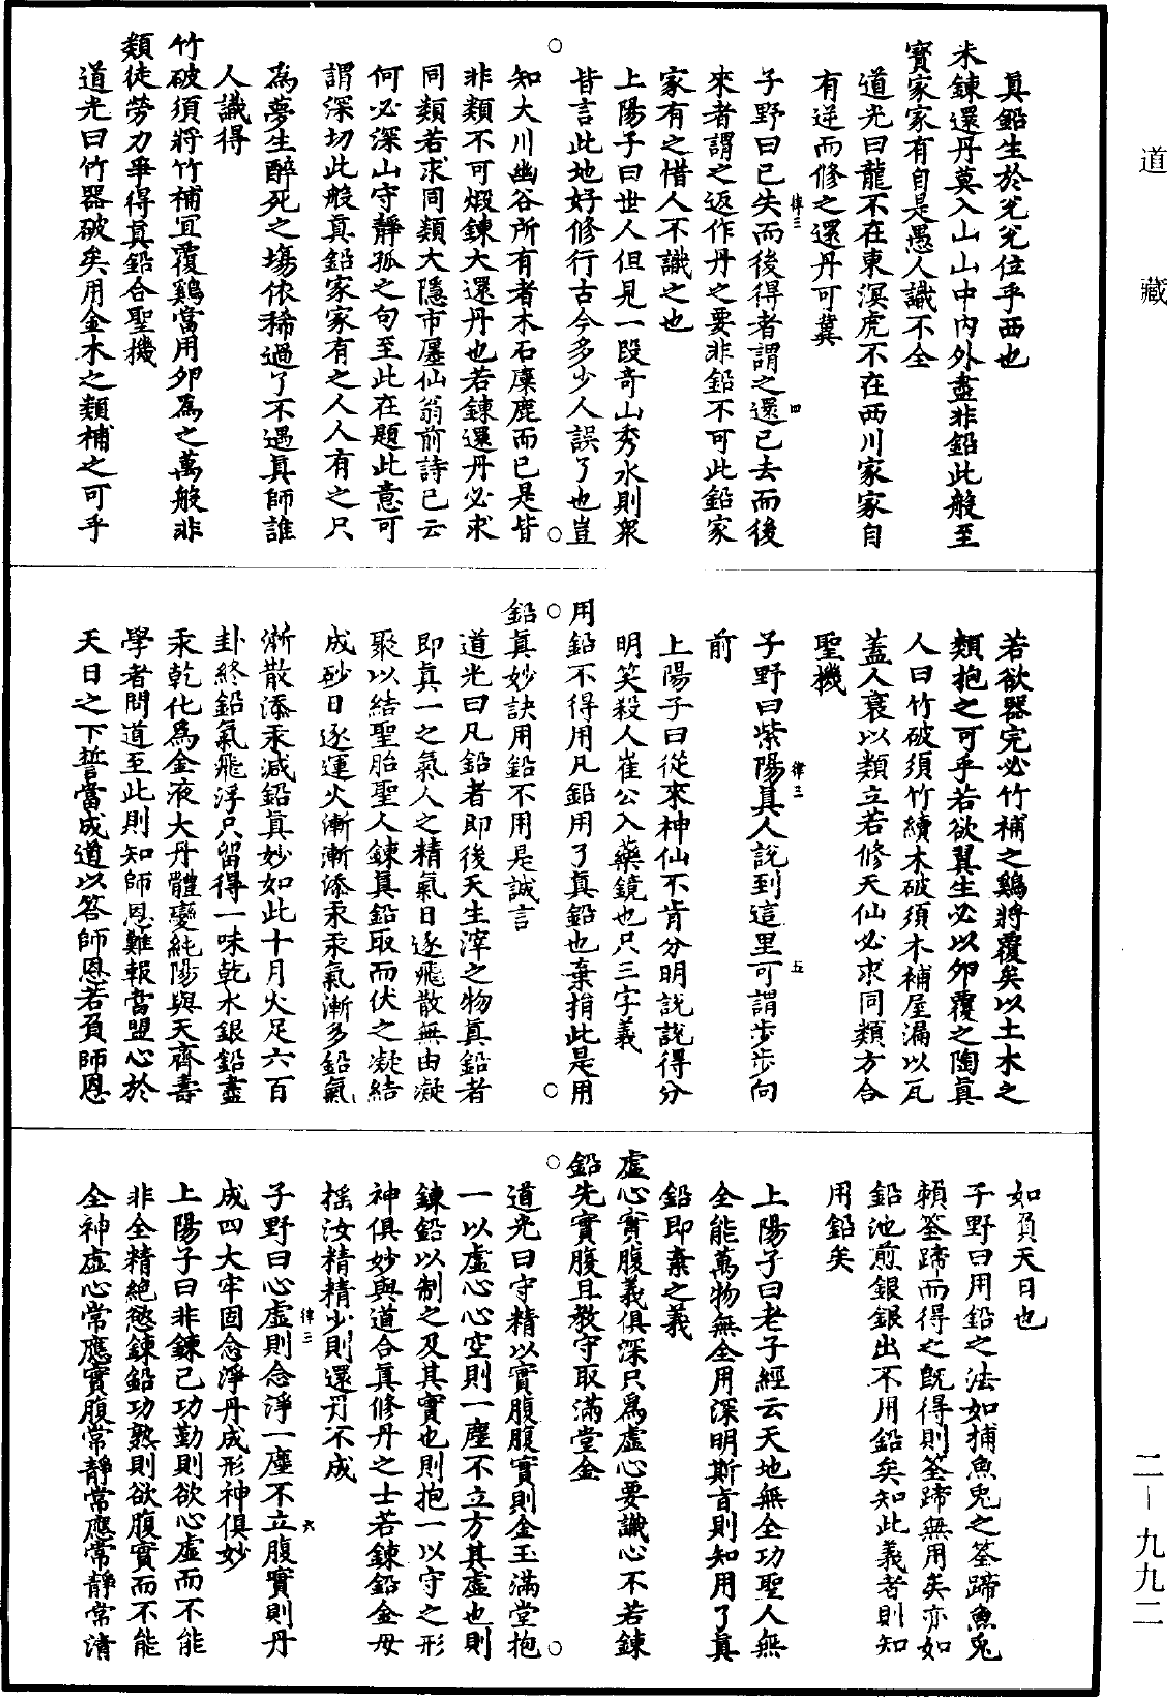 道藏
真鉛生於兊兊位乎西也
未鍊還丹莫入山山中內外盡非鉛此般至
寳家家有自是愚人識不全
道光曰龍不在東溟虎不在西川家家自
有逆而修之還丹可冀
子野曰已失而後得者謂之還已去而後
來者謂之返作丹之要非鉛不可此鉛家
家有之惜人不識之也
上陽子曰世人但見一段奇山秀水則衆
皆言此地好修行古今多少人誤了也豈
知大川幽谷所有者木石麋鹿而已是皆
非類不可煅鍊大還丹也若鍊還丹必求
同類若求同類大隱市廛仙翁前詩已云
何必深山守靜孤之句至此在題此意可
謂深切此般真鉛家家有之人人有之只
為夢生醉死之塲依稀過了不遇真師誰
人識得
竹破須將竹補宜覆鷄當用卵為之萬般非
類徒勞力爭得真鉛合聖機
道光曰竹器破矣用金木之類補之可乎
律三
四
若欲器完必竹補之鷄將覆矣以土木之
類抱之可乎若欲翼生必以卵覆之陶真
人曰竹破須竹續木破須木補屋漏以瓦
蓋人衰以類立若修天仙必求同類方合
聖機
子野曰紫陽真人說到這里可謂步步向
前
上陽子曰從來神仙不肯分明說說得分
明笑殺人崔公入藥鏡也只三字義
用鉛不得用凡鉛用了真鉛也棄捐此是用
鉛真妙訣用鉛不用是誠言
道光曰凡鉛者即後天生滓之物真鉛者
即真一之氣人之精氣日逐飛散無由凝
聚以結聖胎聖人鍊真鉛取而伏之凝結
成砂日逐運火漸漸添汞汞氣漸多鉛氣
漸散添汞減鉛真妙如此十月火足六百
卦終鉛氣飛浮只留得一味乾水銀鉛盡
汞乾化為金液大丹體變純陽與天齊壽
學者問道至此則知師恩難報當盟心於
天日之下誓當成道以答師恩若負師恩
律三
五
如負天日也
子野曰用鉛之法如捕魚兎之筌蹄魚兎
賴筌蹄而得之既得則筌蹄無用矣亦如
鉛池煎銀銀出不用鉛矣知此義者則知
用鉛矣
上陽子曰老子經云天地無全功聖人無
全能萬物無全用深明斯旨則知用了真
鉛即棄之義
虛心實腹義俱深只為虛心要識心不若鍊
鉛先實腹且教守取滿堂金
道光曰守精以實腹腹實則金玉滿堂抱
一以虛心心空則一塵不立方其虛也則
鍊鉛以制之及其實也則抱一以守之形
神俱妙與道合真修丹之士若鍊鉛金母
摇汝精精少則還丹不成
子野曰心虛則念淨一塵不立腹實則丹
成四大牢固念淨丹成形神俱妙
上陽子曰非鍊己功勤則欲心虛而不能
非全精絕慾鍊鉛功熟則欲腹實而不能
全神虛心常應實腹常靜常應常靜常清
律三
六
二-九九二